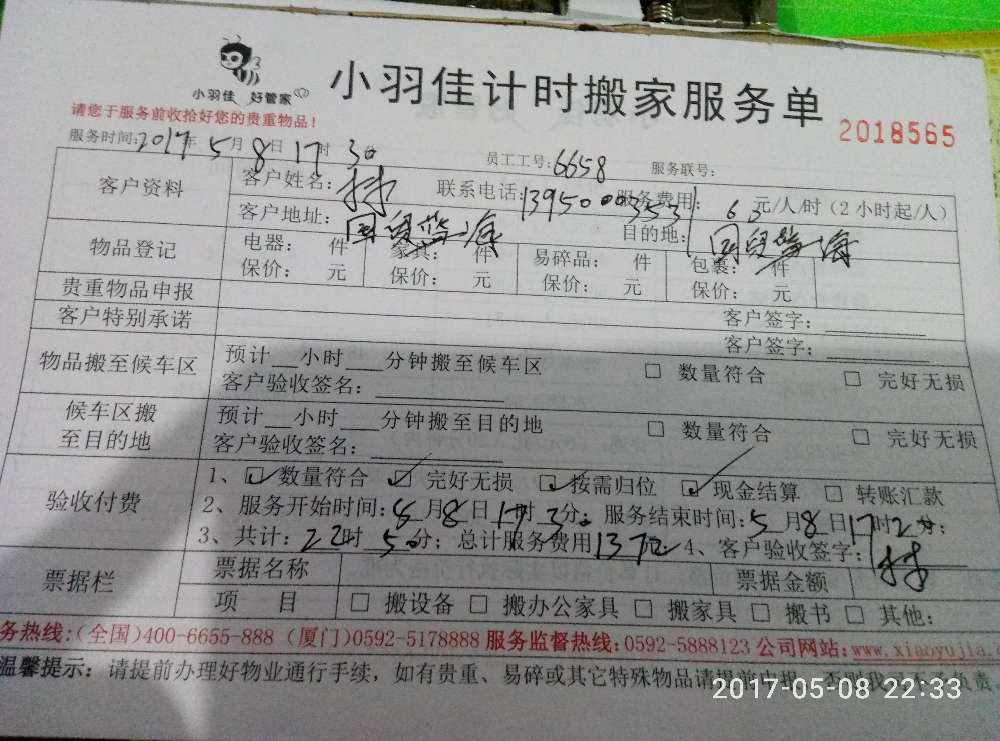 小羽佳 好管家
小羽佳计时搬家服务单
请您于服务前收拾好您的贵重物品！
2018565
服务时间:2017年5月8日17时30 员工工号:6658 服务联号:
客户资料
客户姓名:林 联系电话:13950003531 服务费用: 63 元/人/时（2小时起/人）
客户地址:国贸蓝海 目的地:国贸蓝海
物品登记
电器: 件 家具: 件 易碎品: 件 包裹: 件
保价: 元 保价: 元 保价: 元 保价: 元
贵重物品申报
客户签字:
客户特别承诺
客户签字:
物品搬至候车区
预计__小时___分钟搬至候车区 □ 数量符合 □ 完好无损
客户验收签名:
候车区搬至目的地
预计__小时___分钟搬至目的地 □ 数量符合 □ 完好无损
客户验收签名:
验收付费
1、☑数量符合 ☑ 完好无损 ☑ 按需归位 ☑ 现金结算 □ 转账汇款
2、服务开始时间:5月8日17时3分。服务结束时间:5月8日17时2分;
3、共计:22时50分; 总计服务费用137元 4、客户验收签字:林
票据栏
票据名称 票据金额
项 目 □ 搬设备 □ 搬办公家具 □ 搬家具 □ 搬书 □ 其他:
务热线:(全国)400-6655-888 (厦门)0592-5178888 服务监督热线:0592-5888123 公司网站:www.xiaoyujia.
温馨提示: 请提前办理好物业通行手续，如有贵重、易碎或其它特殊物品请提前申报，否则我司不予负责。
2017-05-08 22:33